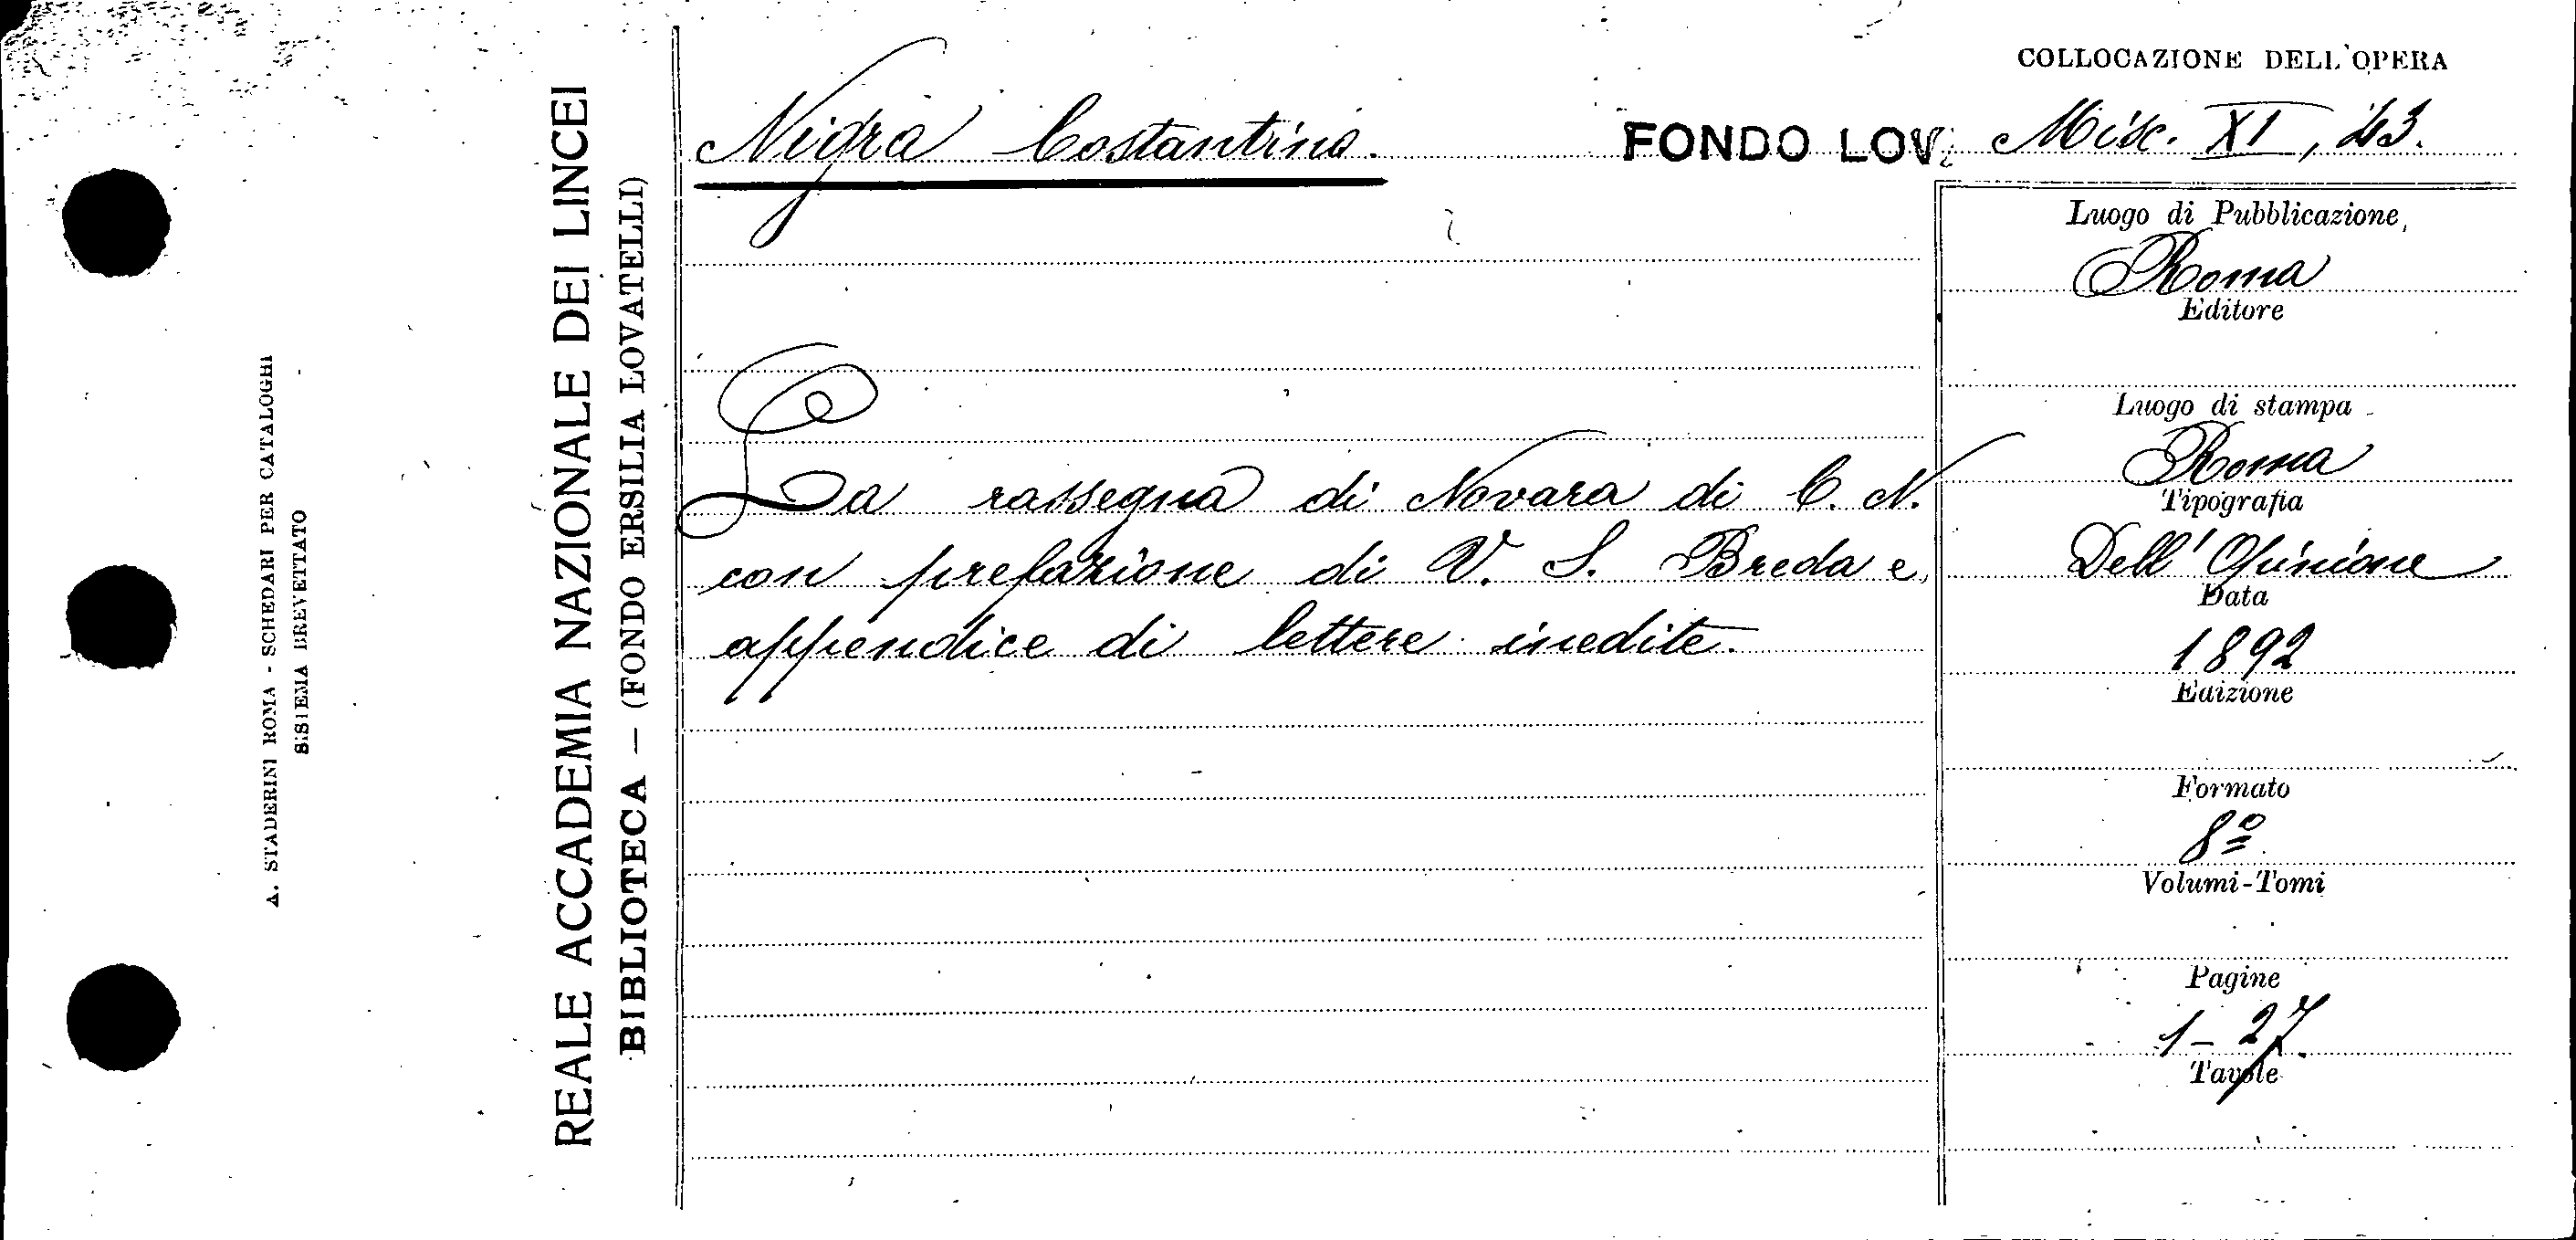 A. STADERINI ROMA - SCHEDARI PER CATALOGHI
SISTEMA BREVETTATO
REALE ACCADEMIA NAZIONALE DEI LINCEI
BIBLIOTECA — (FONDO ERSILIA LOVATELLI)
COLLOCAZIONE DELL'OPERA
Nigra Costantino. FONDO LOV. Misc. XI, 43.
La rassegna di Novara di C. N.
con prefazione di V. S. Breda e
appendice di lettere inedite.
Luogo di Pubblicazione
Roma
Editore
Luogo di stampa
Roma
Tipografia
Dell'Opinione
Data
1892
Edizione
Formato
8º
Volumi-Tomi
Pagine
1-27.
Tavole